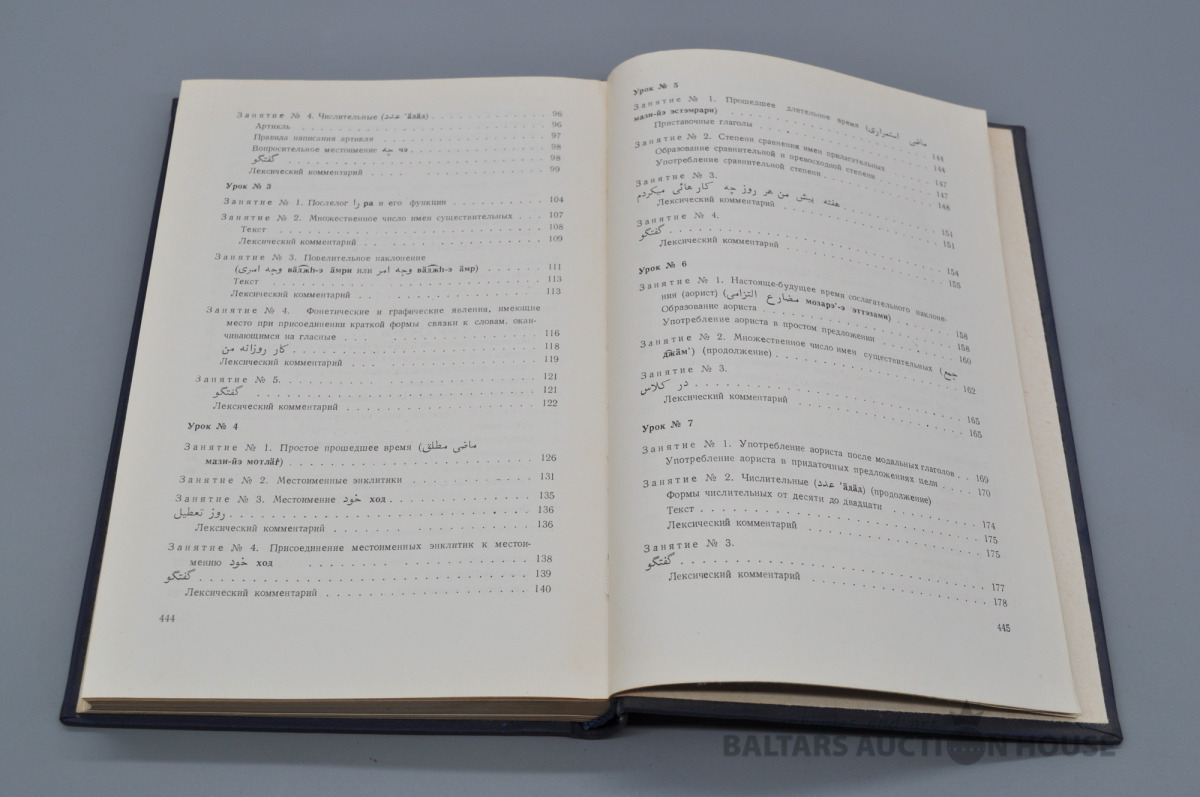 Занятие № 4. Числительные (عدد 'āдāд) . . . . . . . . . . 96
Артикль . . . . . . . . . . 96
Правила написания артикля . . . . . . . . . . 97
Вопросительное местоимение چه че . . . . . . . . . . 98
گفتگو . . . . . . . . . . 98
Лексический комментарий . . . . . . . . . . 99
Урок № 3
Занятие № 1. Послелог را ра и его функции . . . . . . . . . . 104
Занятие № 2. Множественное число имен существительных . . . 107
Текст . . . . . . . . . . 108
Лексический комментарий . . . . . . . . . . 109
Занятие № 3. Повелительное наклонение
(وجه امری вāджh-э āмри или وجه امر вāджh-э āмр) . . . . . . 111
Текст . . . . . . . . . . 113
Лексический комментарий . . . . . . . . . . 113
Занятие № 4. Фонетические и графические явления, имеющие
место при присоединении краткой формы связки к словам, окан-
чивающимся на гласные . . . . . . . . . . 116
کار روزانه من . . . . . . . . . . 118
Лексический комментарий . . . . . . . . . . 119
Занятие № 5. . . . . . . . . . . 121
گفتگو . . . . . . . . . . 121
Лексический комментарий . . . . . . . . . . 122
Урок № 4
Занятие № 1. Простое прошедшее время (ماضی مطلق
мази-йэ мотлāґ) . . . . . . . . . . 126
Занятие № 2. Местоименные энклитики . . . . . . . . . . 131
Занятие № 3. Местоимение خود ход . . . . . . . . . . 135
روز تعطیل . . . . . . . . . . 136
Лексический комментарий . . . . . . . . . . 136
Занятие № 4. Присоединение местоименных энклитик к местои-
мению خود ход . . . . . . . . . . 138
گفتگو . . . . . . . . . . 139
Лексический комментарий . . . . . . . . . . 140
444
Урок № 5
Занятие № 1. Прошедшее длительное время (ماضی استمراری
мази-йэ эстэмрари) . . . . . . . . . . 144
Приставочные глаголы . . . . . . . . . . 144
Занятие № 2. Степени сравнения имен прилагательных
Образование сравнительной и превосходной степени . . . 147
Употребление сравнительной степени . . . . . . . . . . 147
Занятие № 3. . . . . . . . . . . 148
هفته پیش من هر روز چه کارهائی میکردم
Лексический комментарий . . . . . . . . . . 151
Занятие № 4. . . . . . . . . . . 151
گفتگو . . . . . . . . . . 154
Лексический комментарий . . . . . . . . . . 155
Урок № 6
Занятие № 1. Настояще-будущее время сослагательного наклоне-
ния (аорист) (مضارع التزامی мозарэ'-э элтэзами) . . . . . 158
Образование аориста . . . . . . . . . . 158
Употребление аориста в простом предложении . . . . . . 160
Занятие № 2. Множественное число имен существительных (جمع
джāм') (продолжение) . . . . . . . . . . 162
Занятие № 3.
در کلاس . . . . . . . . . . 165
Лексический комментарий . . . . . . . . . . 165
Урок № 7
Занятие № 1. Употребление аориста после модальных глаголов . . 169
Употребление аориста в придаточных предложениях цели . . . . 170
Занятие № 2. Числительные (عدد 'āдāд) (продолжение)
Формы числительных от десяти до двадцати . . . . . . 174
Текст . . . . . . . . . . 175
Лексический комментарий . . . . . . . . . . 175
Занятие № 3.
گفتگو . . . . . . . . . . 177
Лексический комментарий . . . . . . . . . . 178
445
BALTARS AUCTION HOUSE